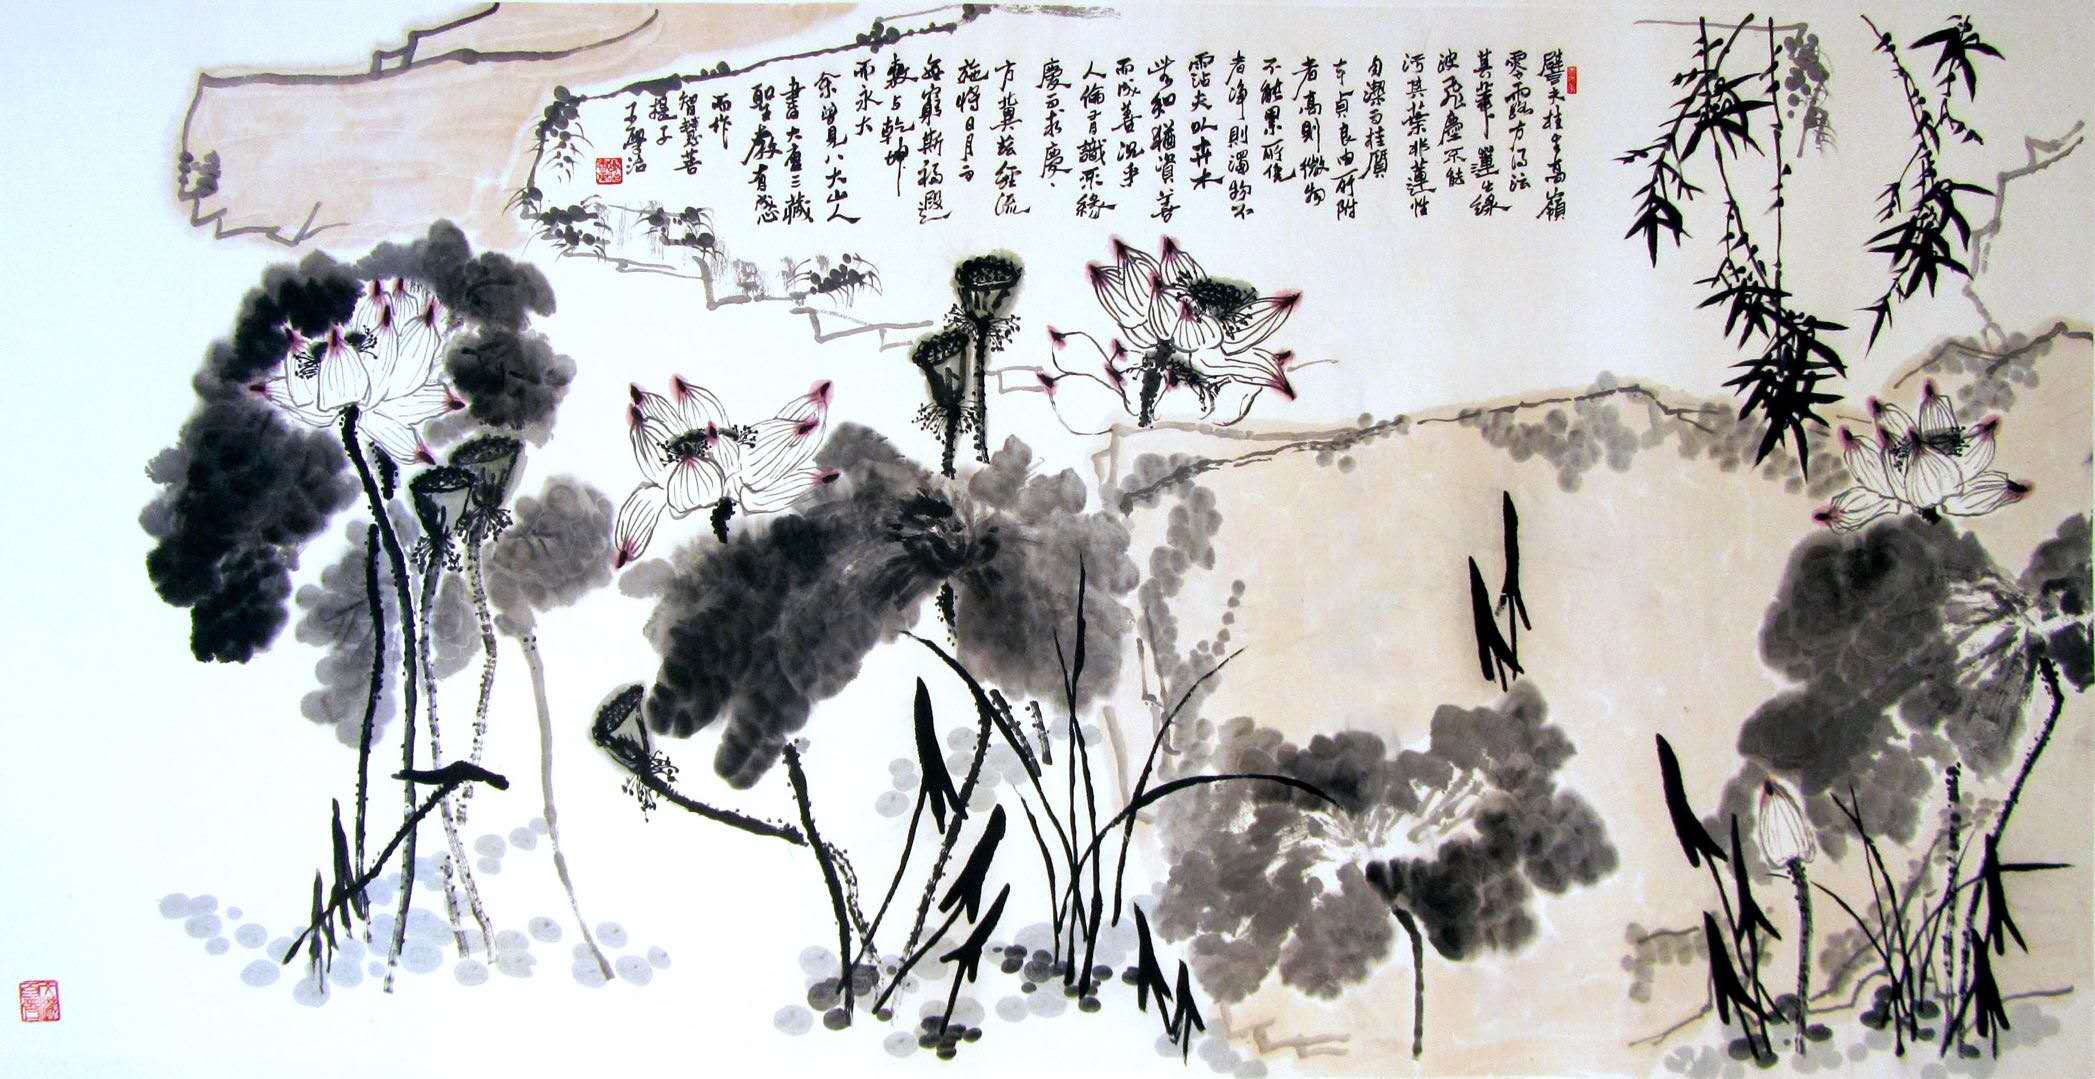 譬夫桂生高嶺
零露方得泫
其華蓮出綠
波飛塵不能
污其葉非蓮性
自潔而桂質
本貞良由所附
者高則微物
不能累所憑
者净則濁物不
霑夫以卉木
無知猶資善
而成善況乎
人倫有識不緣
慶而求慶、
方冀兹經流
施將日月而
無窮斯福遐
敷与乾坤
而永大
余曾見八大山人
書大唐三藏
聖教有感
而作
智慧菩
提子